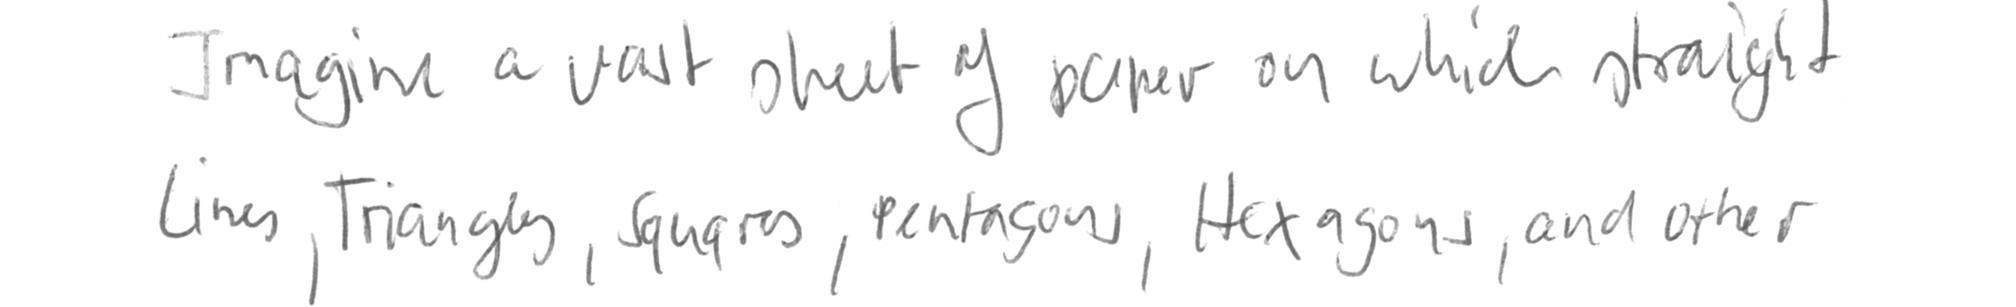 Imagine a vast sheet of paper on which straight
Lines, Triangles, Squares, Pentagons, Hexagons, and other